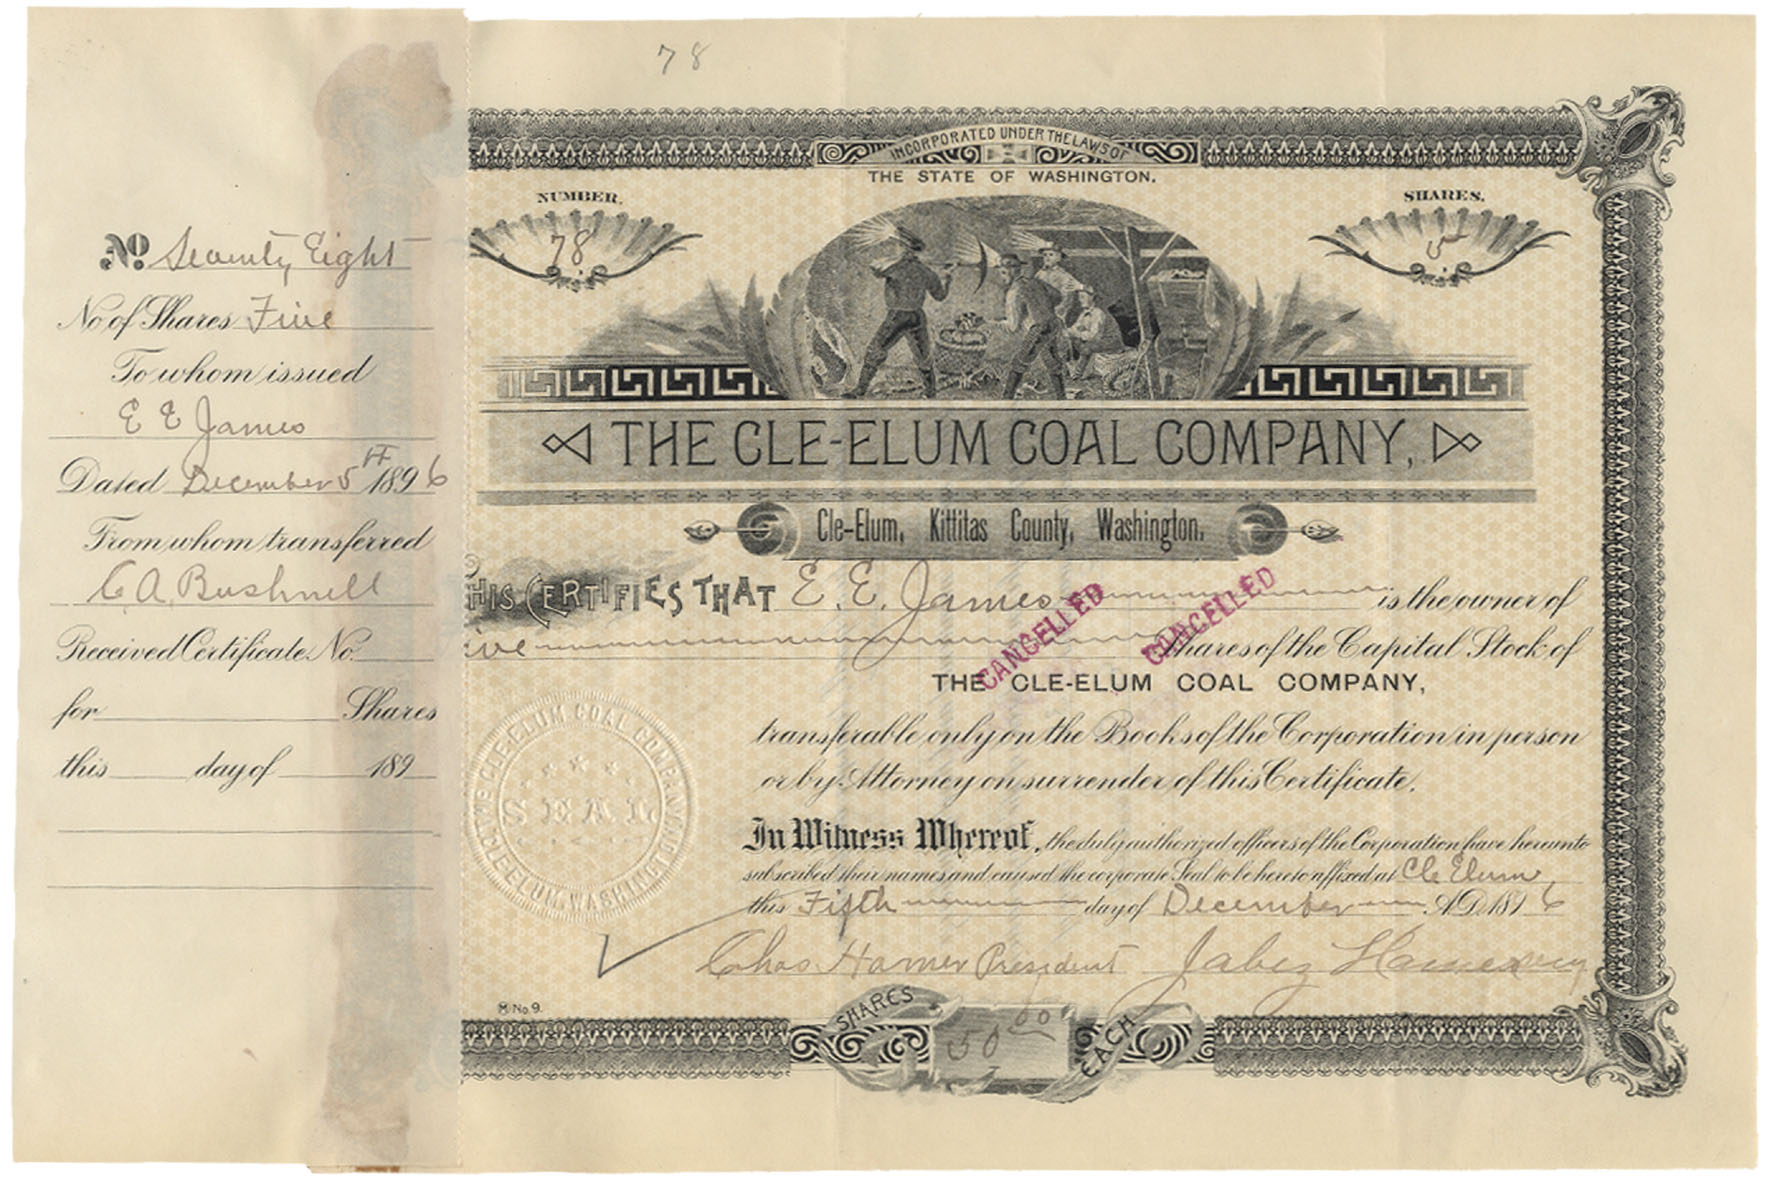 78
INCORPORATED UNDER THE LAWS OF
THE STATE OF WASHINGTON.
NUMBER.
78
SHARES.
5
No Seventy Eight
No of Shares Five
To whom issued
E E James
Dated December 5th 1896
From whom transferred
C A Bushnell
Received Certificate No.
for Shares
this day of 189
THE CLE-ELUM COAL COMPANY,
Cle-Elum, Kittitas County, Washington.
HIS CERTIFIES THAT E. E. James is the owner of
ive Shares of the Capital Stock of
CANCELLED
CANCELLED
THE CLE-ELUM COAL COMPANY,
transferable only on the Books of the Corporation in person
or by Attorney on surrender of this Certificate.
In Witness Whereof, the duly authorized officers of the Corporation have hereunto
subscribed their names and caused the corporate Seal to be hereto affixed at Cle Elum
this Fifth day of December A.D. 1896
Chas. Hamer President Jabez
THE CLE-ELUM COAL COMPANY
SEAL
CLE-ELUM, WASHINGTON
M. No 9.
SHARES
50.00
EACH